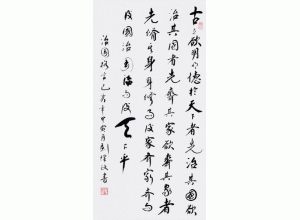 古之欲明明德於天下者先治其國欲
治其國者先齊其家欲齊其家者
先修其身身修而后家齊家齊而
后國治國治而后天下平
治國格言己亥年書